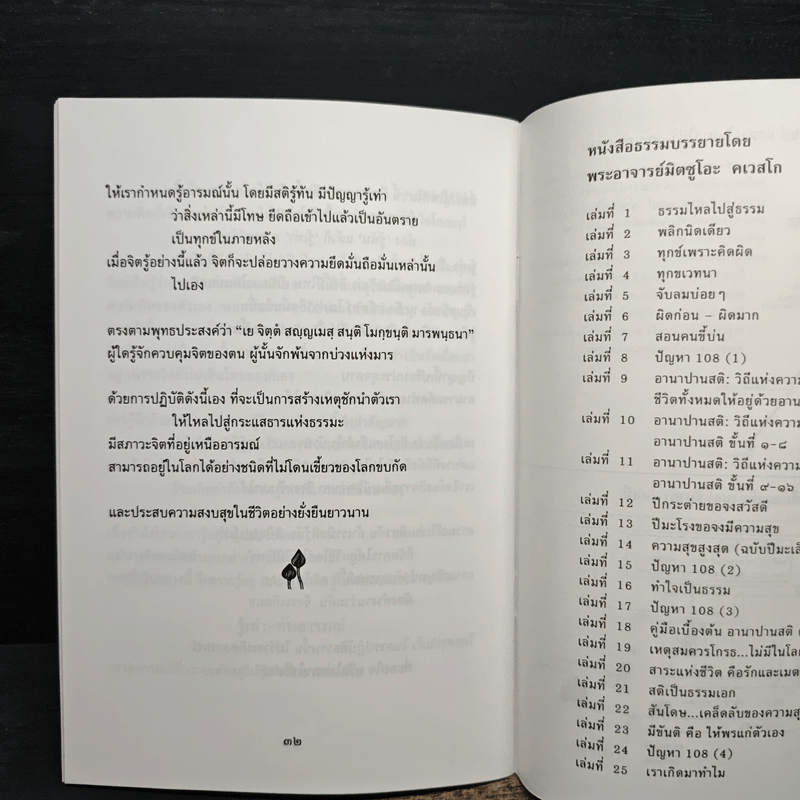 ให้เรากำหนดรู้อารมณ์นั้น โดยมีสติรู้ทัน มีปัญญารู้เท่า
ว่าสิ่งเหล่านี้มีโทษ ยึดถือเข้าไปแล้วเป็นอันตราย
เป็นทุกข์ในภายหลัง
เมื่อจิตรู้อย่างนี้แล้ว จิตก็จะปล่อยวางความยึดมั่นถือมั่นเหล่านั้น
ไปเอง
ตรงตามพุทธประสงค์ว่า “เย จิตฺตํ สญฺญเมสฺ สนฺติ โมกฺขนฺติ มารพนฺธนา”
ผู้ใดรู้จักควบคุมจิตของตน ผู้นั้นจักพ้นจากบ่วงแห่งมาร
ด้วยการปฏิบัติดังนี้เอง ที่จะเป็นการสร้างเหตุชักนำตัวเรา
ให้ไหลไปสู่กระแสธารแห่งธรรมะ
มีสภาวะจิตที่อยู่เหนืออารมณ์
สามารถอยู่ในโลกได้อย่างชนิดที่ไม่โดนเขี้ยวของโลกขบกัด
และประสบความสงบสุขในชีวิตอย่างยั่งยืนยาวนาน
๓๒
หนังสือธรรมบรรยายโดย
พระอาจารย์มิตซูโอะ คเวสโก
เล่มที่ 1 ธรรมไหลไปสู่ธรรม
เล่มที่ 2 พลิกนิดเดียว
เล่มที่ 3 ทุกข์เพราะคิดผิด
เล่มที่ 4 ทุกขเวทนา
เล่มที่ 5 จับลมบ่อยๆ
เล่มที่ 6 ผิดก่อน - ผิดมาก
เล่มที่ 7 สอนคนขี้บ่น
เล่มที่ 8 ปัญหา 108 (1)
เล่มที่ 9 อานาปานสติ: วิถีแห่งความ
ชีวิตทั้งหมดให้อยู่ด้วยอาน
เล่มที่ 10 อานาปานสติ: วิถีแห่งความ
อานาปานสติ ขั้นที่ ๑-๘
เล่มที่ 11 อานาปานสติ: วิถีแห่งความ
อานาปานสติ ขั้นที่ ๙-๑๖
เล่มที่ 12 ปีกระต่ายขอจงสวัสดี
เล่มที่ 13 ปีมะโรงขอจงมีความสุข
เล่มที่ 14 ความสุขสูงสุด (ฉบับปีมะเส็
เล่มที่ 15 ปัญหา 108 (2)
เล่มที่ 16 ทำใจเป็นธรรม
เล่มที่ 17 ปัญหา 108 (3)
เล่มที่ 18 คู่มือเบื้องต้น อานาปานสติ
เล่มที่ 19 เหตุสมควรโกรธ...ไม่มีในโล
เล่มที่ 20 สาระแห่งชีวิต คือรักและเมต
เล่มที่ 21 สติเป็นธรรมเอก
เล่มที่ 22 สันโดษ...เคล็ดลับของความสุ
เล่มที่ 23 มีขันติ คือ ให้พรแก่ตัวเอง
เล่มที่ 24 ปัญหา 108 (4)
เล่มที่ 25 เราเกิดมาทำไม